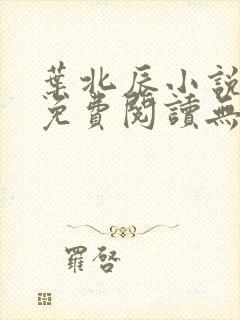 葉北辰小說
免費閱讀無
羅啓